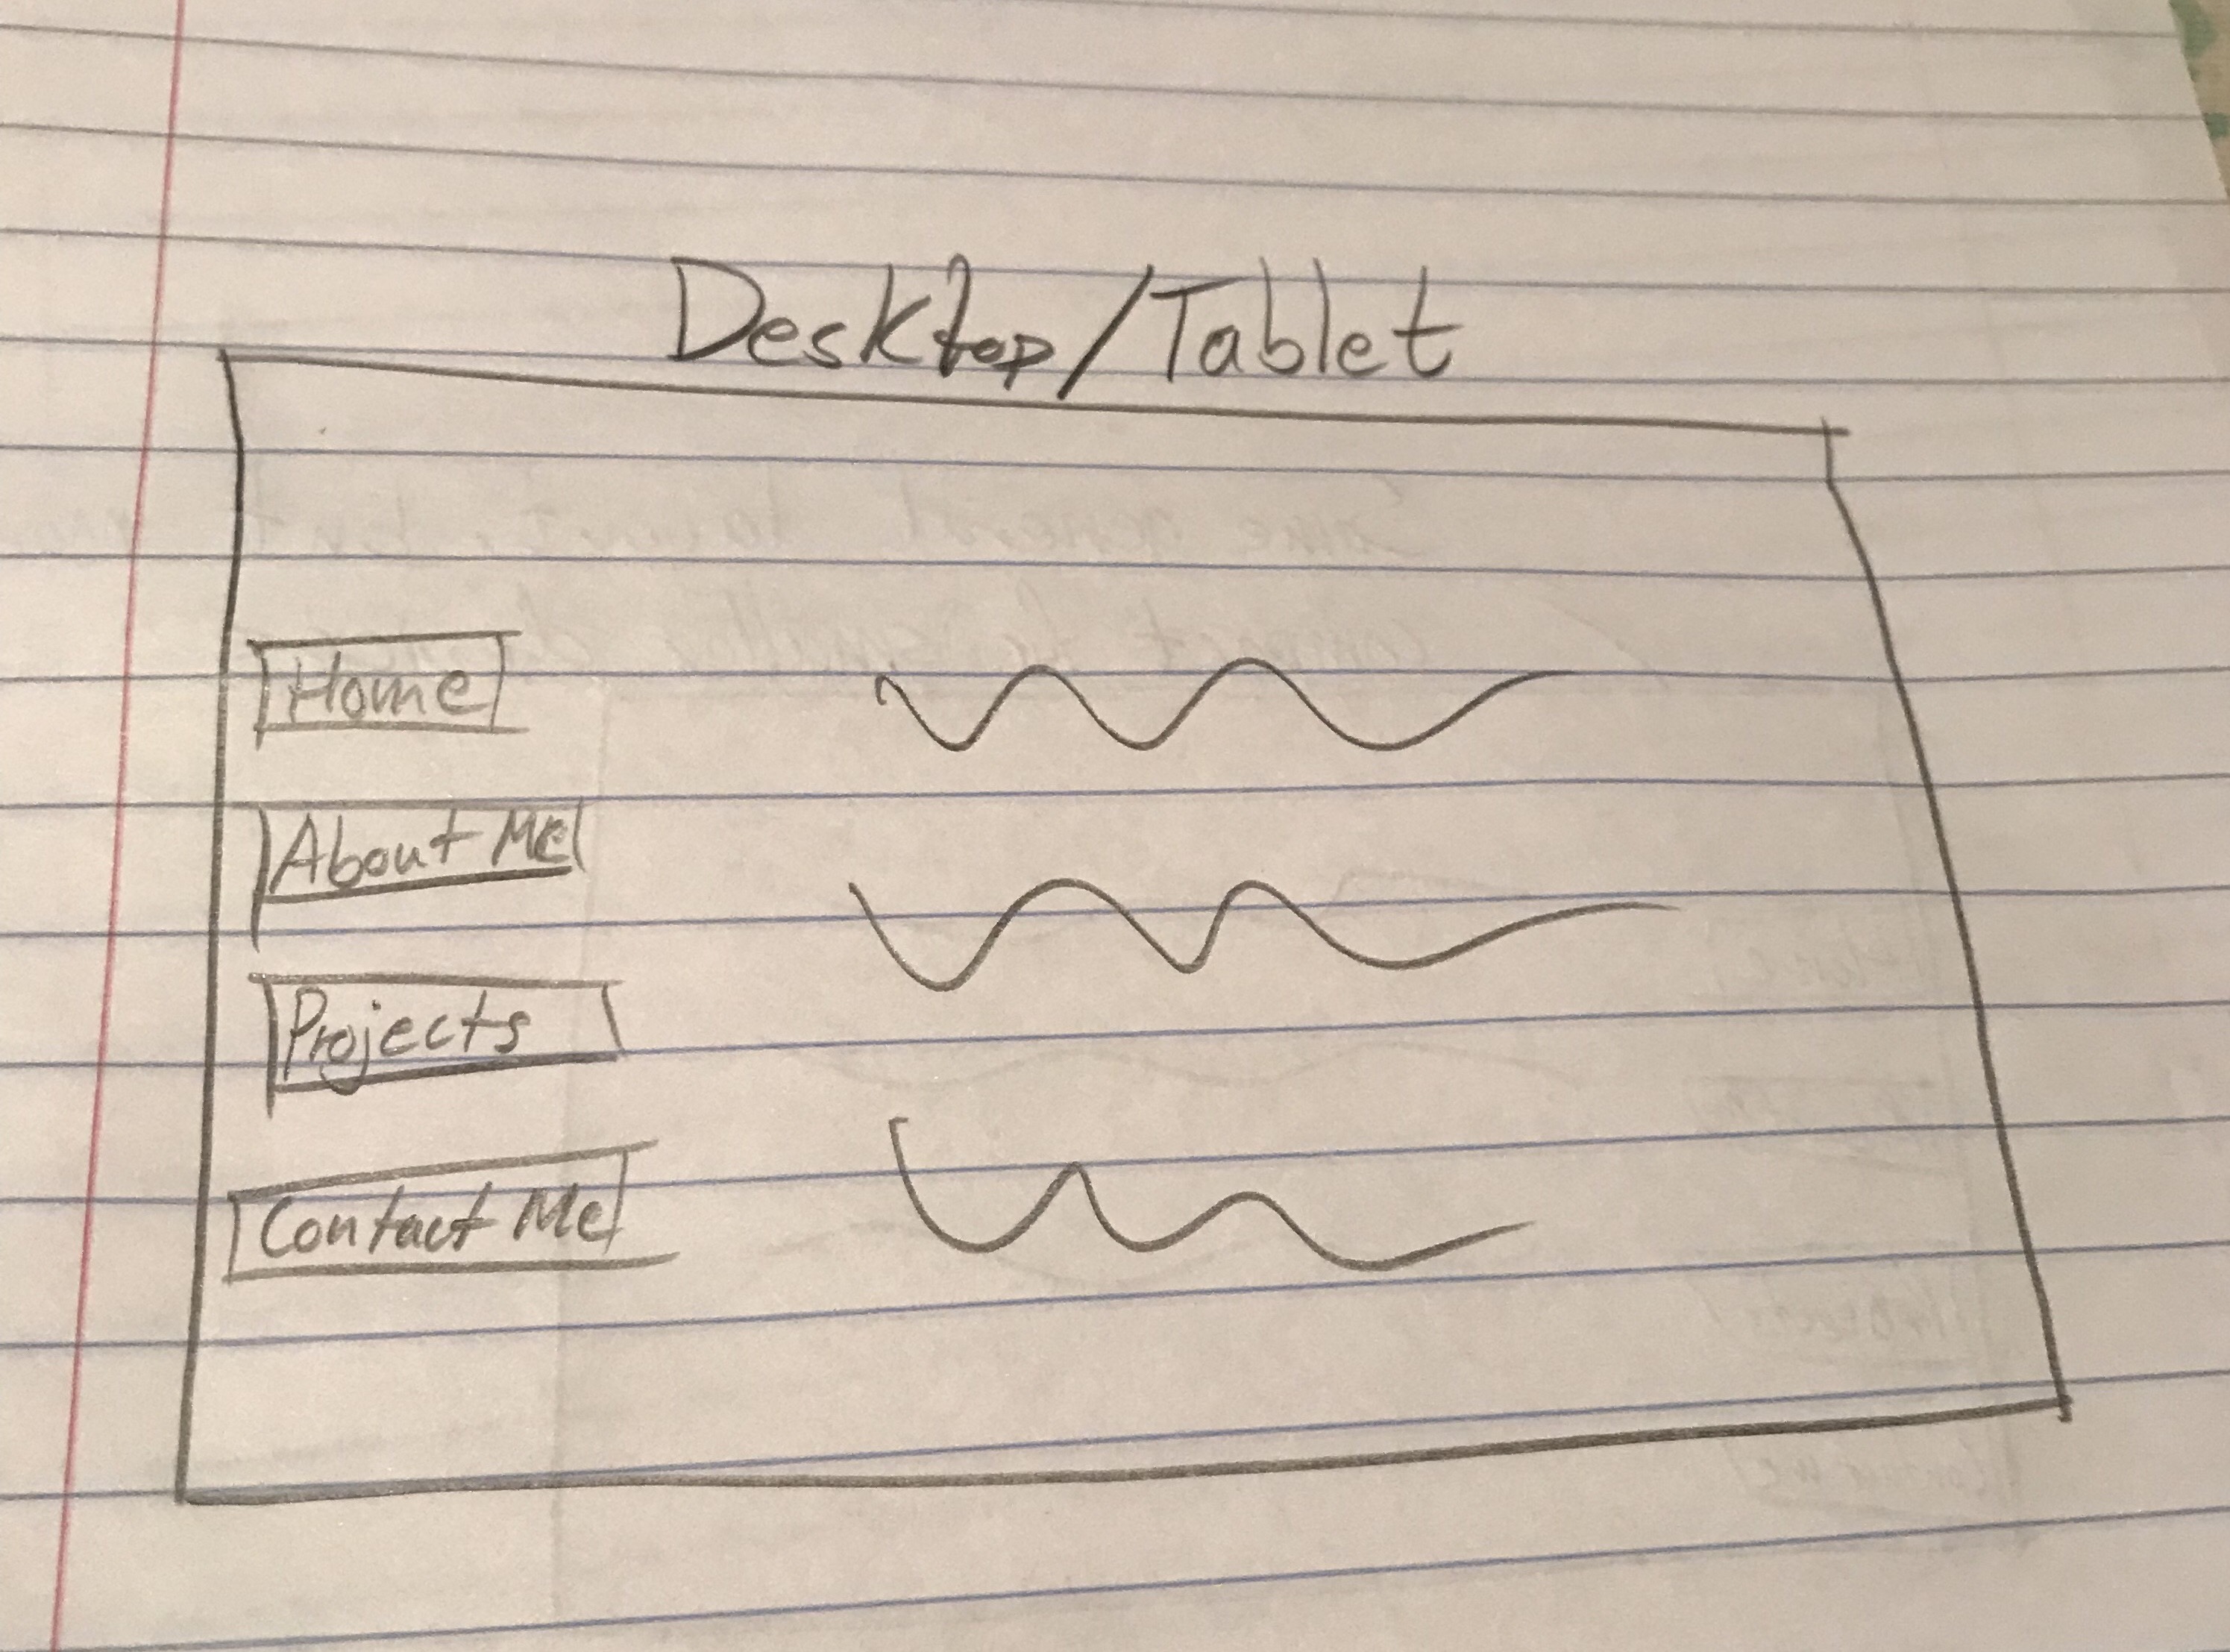 Desktop/Tablet
Home
About Me
Projects
Contact Me